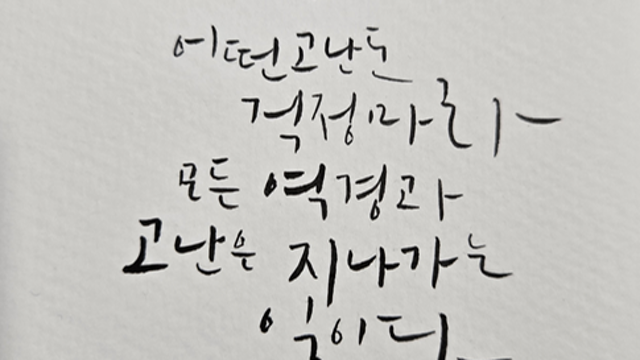 어떤고난도
걱정마라
모든 역경과
고난은 지나가는
일이다